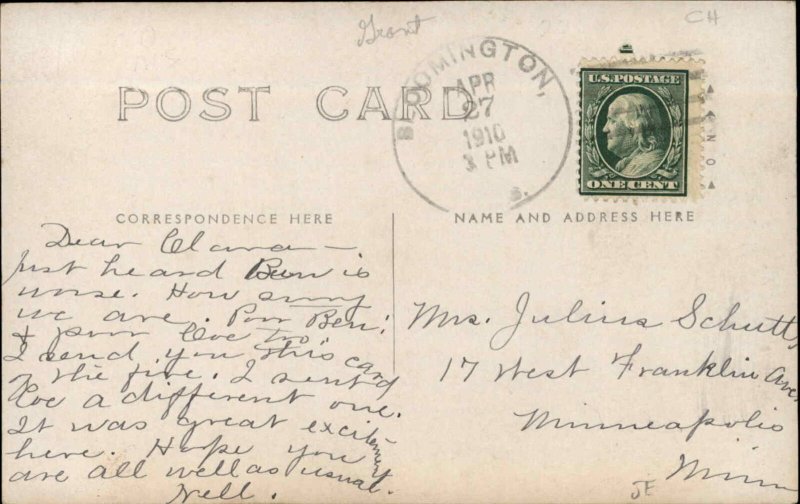 Grant
CH
POST CARD
BLOOMINGTON,
APR
27
1910
3 PM
S.
U.S. POSTAGE
ONE CENT
NO
CORRESPONDENCE HERE
NAME AND ADDRESS HERE
Dear Clara —
Just heard Ben is
worse. How sorry
we are. Poor Ben!
& poor Coe too.
I send you this card
of the fire. I sent
Coe a different one.
It was great excitement
here. Hope you
are all well as usual.
Nell.
Mrs. Julius Schutt,
17 West Franklin Ave.
Minneapolis
Minn
JE